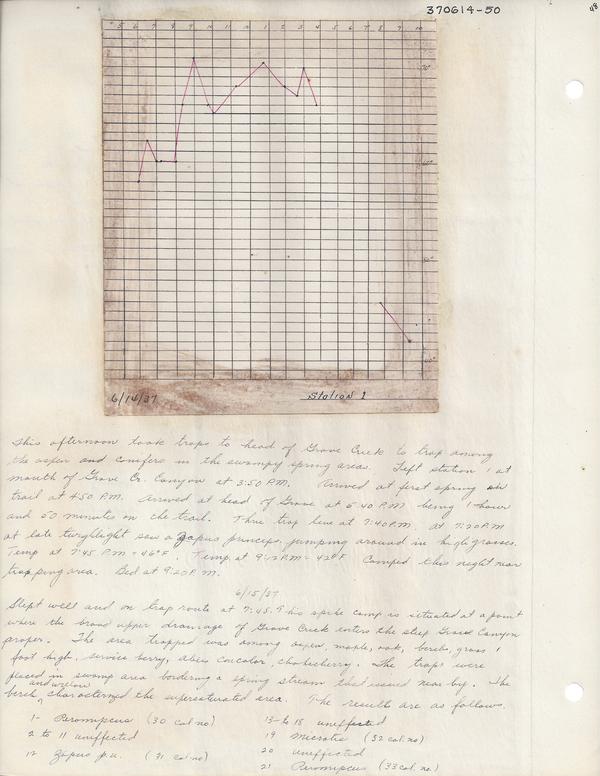 370614-50
48
5 6 7 8 9 10 11 12 1 2 3 4 5 6 7 8 9 10
70°
60°
50°
40°
6/14/37 Station 1
This afternoon took traps to head of Grove Creek to trap among
the aspen and conifers in the swampy spring areas. Left station 1 at
mouth of Grove Cr. Canyon at 3:50 P.M. Arrived at first spring on
trail at 4:50 P.M. Arrived at head of Grove at 5:40 P.M. being 1 hour
and 50 minutes on the trail. Thru trap line at 7:40 P.M. At 7:20 P.M.
at late twighlight saw a Zapus princeps jumping around in high grasses.
Temp at 7:45 P.M. = 46°F. Temp. at 9:12 P.M. = 42°F Camped this night near
trapping area. Bed at 9:20 P.M.
6/15/37
Slept well and on trap route at 7:45. This spike camp is situated at a point
where the broad upper drainage of Grove Creek enters the steep Grove Canyon
proper. The area trapped was among aspen, maple, oak, berch, grass 1
foot high, service berry, abies concolor, chokecherry. The traps were
placed in swamp area bordering a spring stream that issued near by. The
berch and willow characterized the supersaturated area. The results are as follows.
1- Peromyscus (30 cal. no)
2 to 11 uneffected
12 Zapus p.u. (31 cal. no)
13- to 18 uneffected
19 Microtis (32 cal. no)
20 uneffected
21 Peromyscus (33 cal. no.)